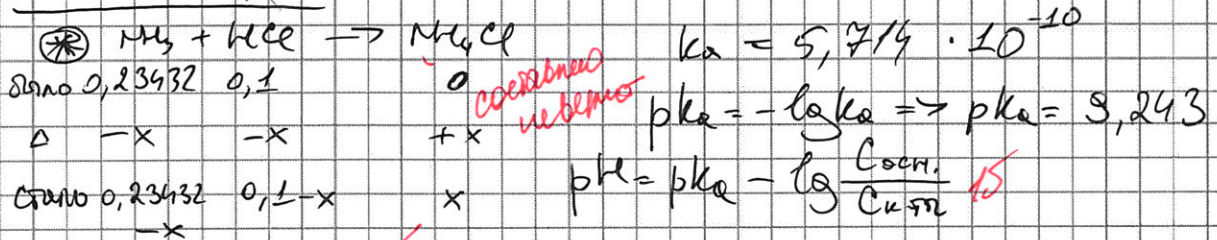 * NH3 + HCl → NH4Cl
было 0,23432 0,1 0
Δ -x -x +x
стало 0,23432 0,1-x x
-x
составлено неверно
ka = 5,714 · 10^-10
pka = -lg ka => pka = 9,243
pH = pka - lg Cосн. / Cк-ты
1б